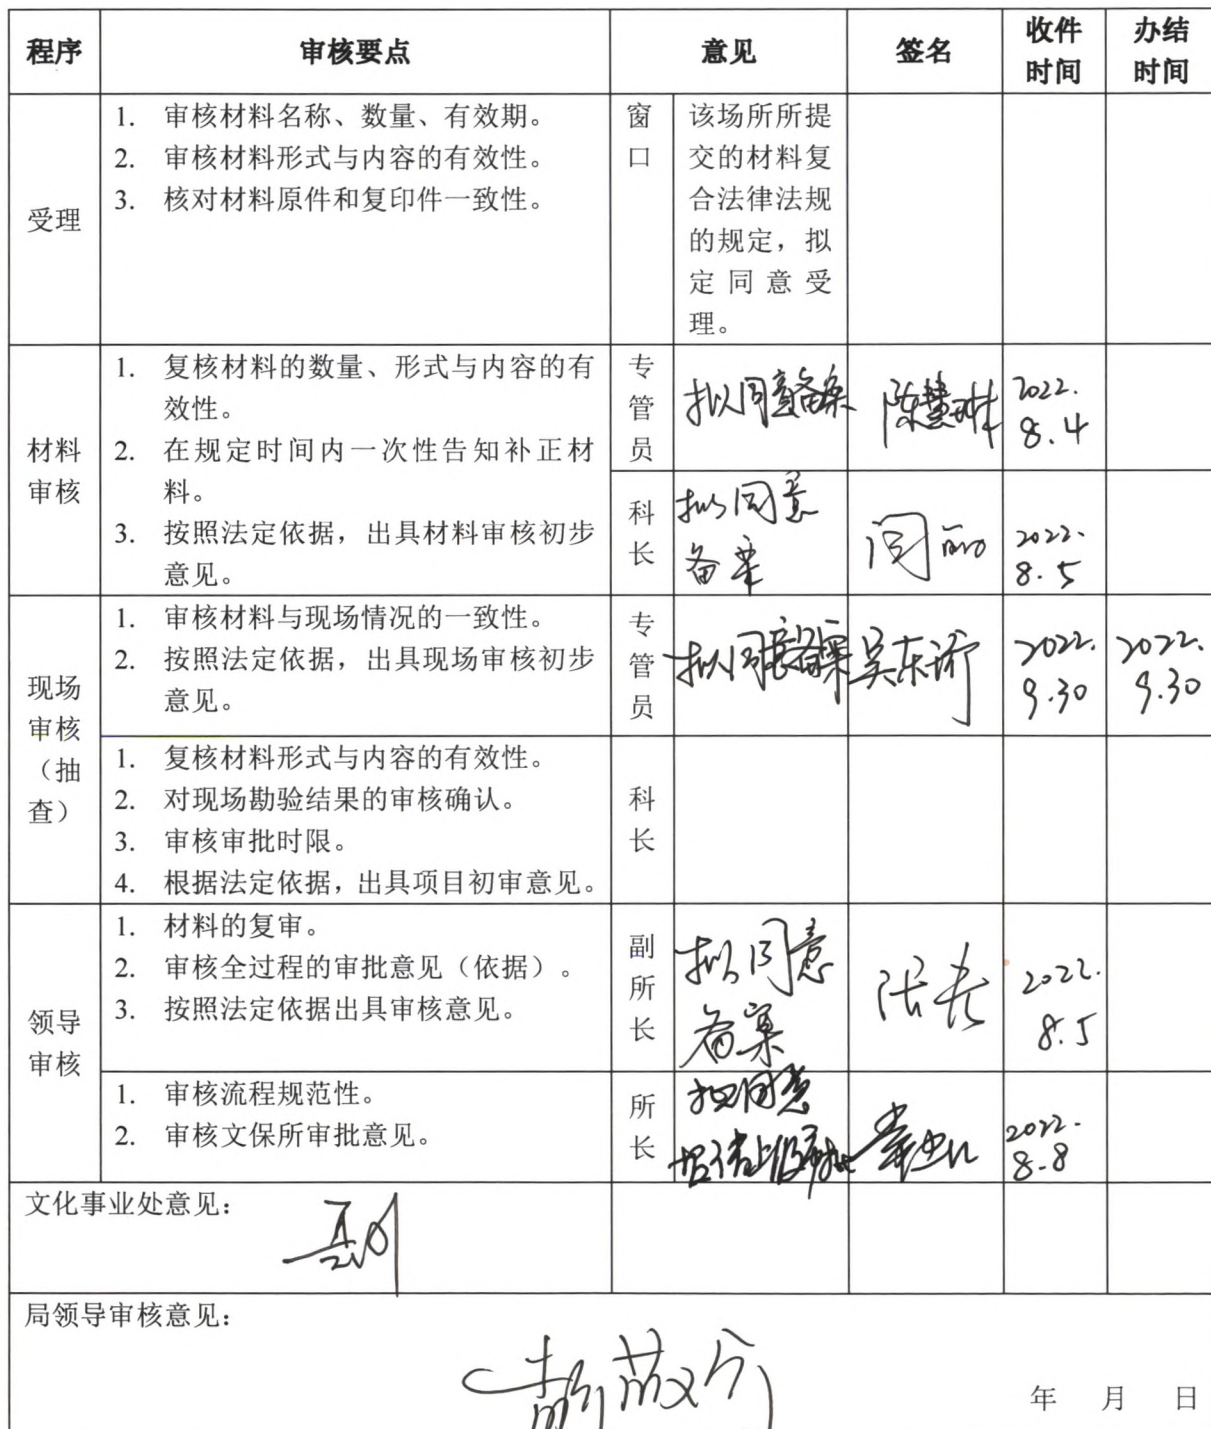 程序
审核要点
意见
签名
收件
时间
办结
时间
受理
1. 审核材料名称、数量、有效期。
2. 审核材料形式与内容的有效性。
3. 核对材料原件和复印件一致性。
窗
口
该场所所提
交的材料复
合法律法规
的规定，拟
定同意受
理。
材料
审核
1. 复核材料的数量、形式与内容的有
效性。
2. 在规定时间内一次性告知补正材
料。
3. 按照法定依据，出具材料审核初步
意见。
专
管
员
拟同意备案
陈慧琳
2022.
8.4
科
长
拟同意
备案
闵丽
2022.
8.5
现场
审核
（抽
查）
1. 审核材料与现场情况的一致性。
2. 按照法定依据，出具现场审核初步
意见。
专
管
员
拟同意备案
吴东
2022.
9.30
2022.
9.30
1. 复核材料形式与内容的有效性。
2. 对现场勘验结果的审核确认。
3. 审核审批时限。
4. 根据法定依据，出具项目初审意见。
科
长
领导
审核
1. 材料的复审。
2. 审核全过程的审批意见（依据）。
3. 按照法定依据出具审核意见。
副
所
长
拟同意
备案
2022.
8.5
1. 审核流程规范性。
2. 审核文保所审批意见。
所
长
拟同意
2022.
8.8
文化事业处意见：
局领导审核意见：
年 月 日